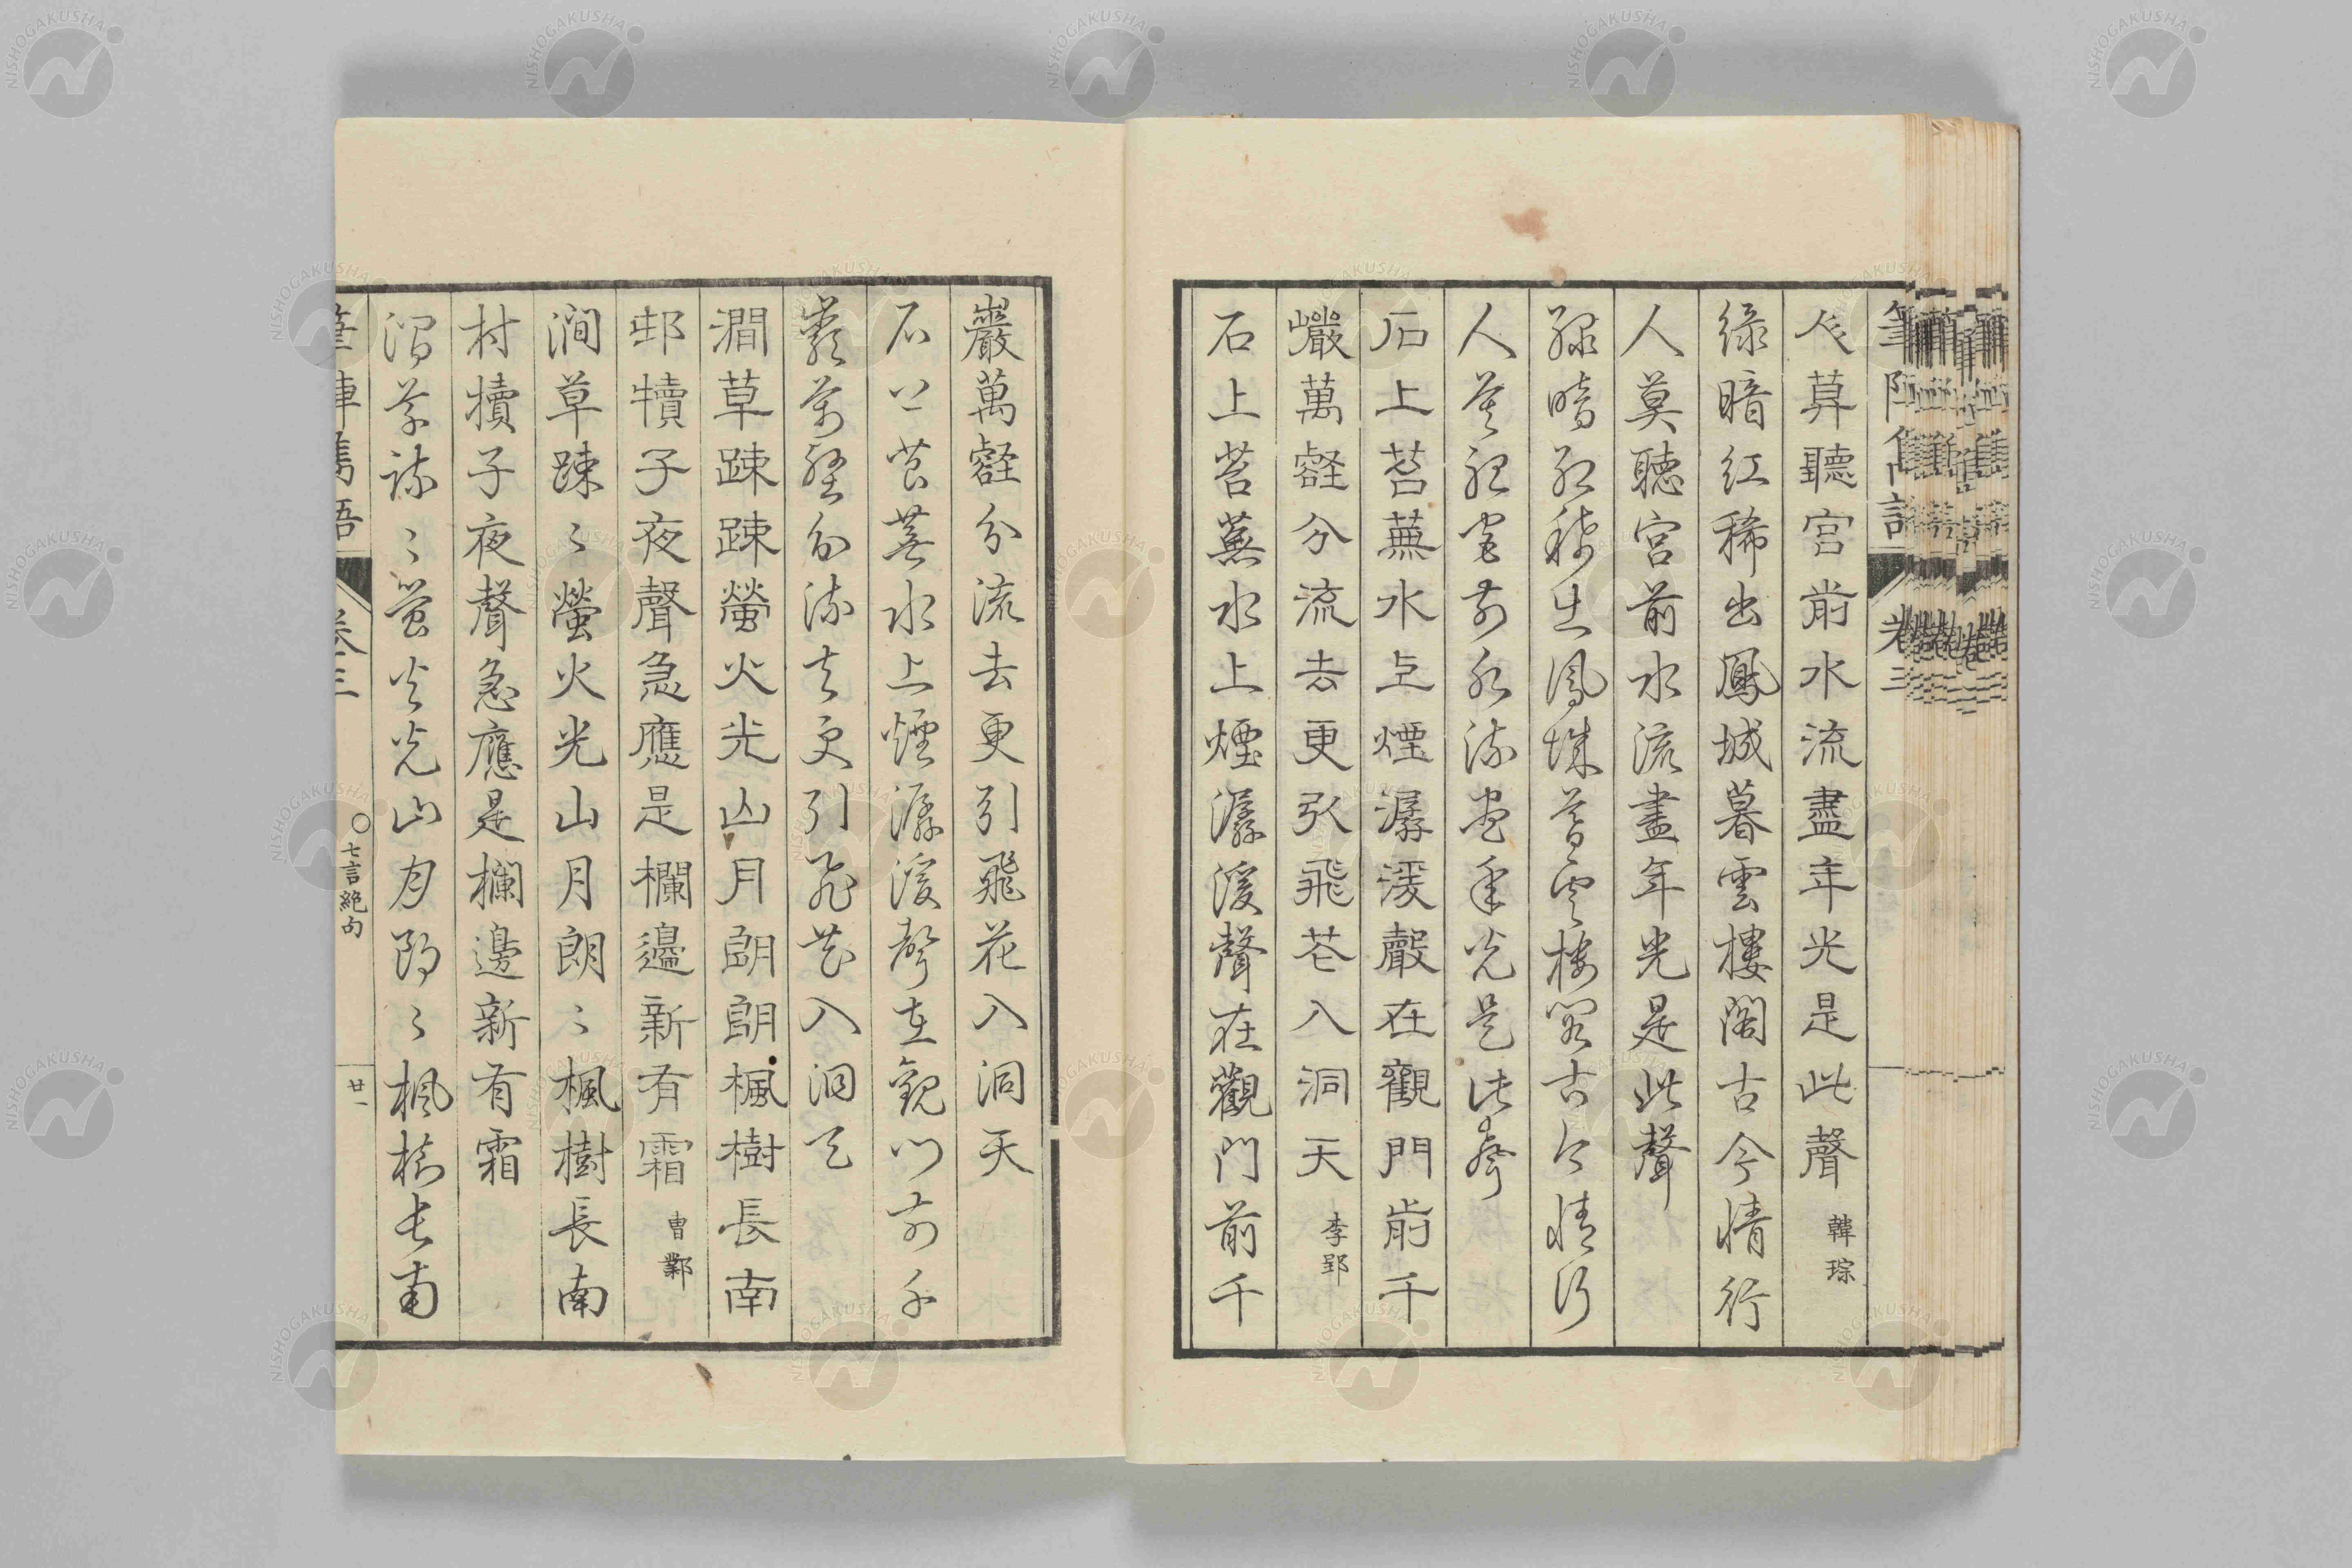 人莫聽宮前水流盡年光是此聲 韓琮
綠暗紅稀出鳳城暮雲樓閣古今情行
人莫聽宮前水流盡年光是此聲
綠暗紅稀出鳳城暮雲樓閣古今情行
人莫聽宮前水流盡年光是此聲
石上苔蕪水上煙潺湲聲在觀門前千
巖萬壑分流去更引飛花入洞天 李郢
石上苔蕪水上煙潺湲聲在觀門前千
巖萬壑分流去更引飛花入洞天
石上苔蕪水上煙潺湲聲在觀門前千
巖萬壑分流去更引飛花入洞天
澗草疎疎螢火光山月朗朗楓樹長南
邨犢子夜聲急應是欄邊新有霜 曹鄴
澗草疎〻螢火光山月朗〻楓樹長南
村犢子夜聲急應是欄邊新有霜
澗草疎〻螢火光山月朗〻楓樹長南
筆陣雋語 卷三 〇七言絕句 廿一
NISHOGAKUSHA